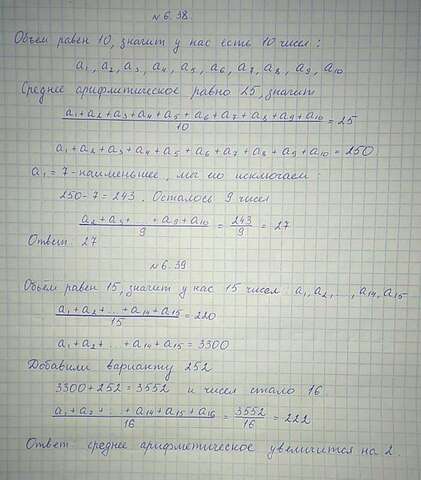 №6.38.
Объем равен 10, значит у нас есть 10 чисел:
a₁, a₂, a₃, a₄, a₅, a₆, a₇, a₈, a₉, a₁₀
Среднее арифметическое равно 25, значит
(a₁+a₂+a₃+a₄+a₅+a₆+a₇+a₈+a₉+a₁₀)/10 = 25
a₁+a₂+a₃+a₄+a₅+a₆+a₇+a₈+a₉+a₁₀ = 250
a₁ = 7 - наименьшее, мы его исключаем:
250-7=243. Осталось 9 чисел
(a₂+a₃+...+a₉+a₁₀)/9 = 243/9 = 27
Ответ 27
№6.39
Объем равен 15, значит у нас 15 чисел: a₁, a₂, ..., a₁₄, a₁₅
(a₁+a₂+...+a₁₄+a₁₅)/15 = 220
a₁+a₂+...+a₁₄+a₁₅ = 3300
Добавили варианту 252
3300+252=3552 и чисел стало 16
(a₁+a₂+...+a₁₄+a₁₅+a₁₆)/16 = 3552/16 = 222
Ответ среднее арифметическое увеличится на 2.